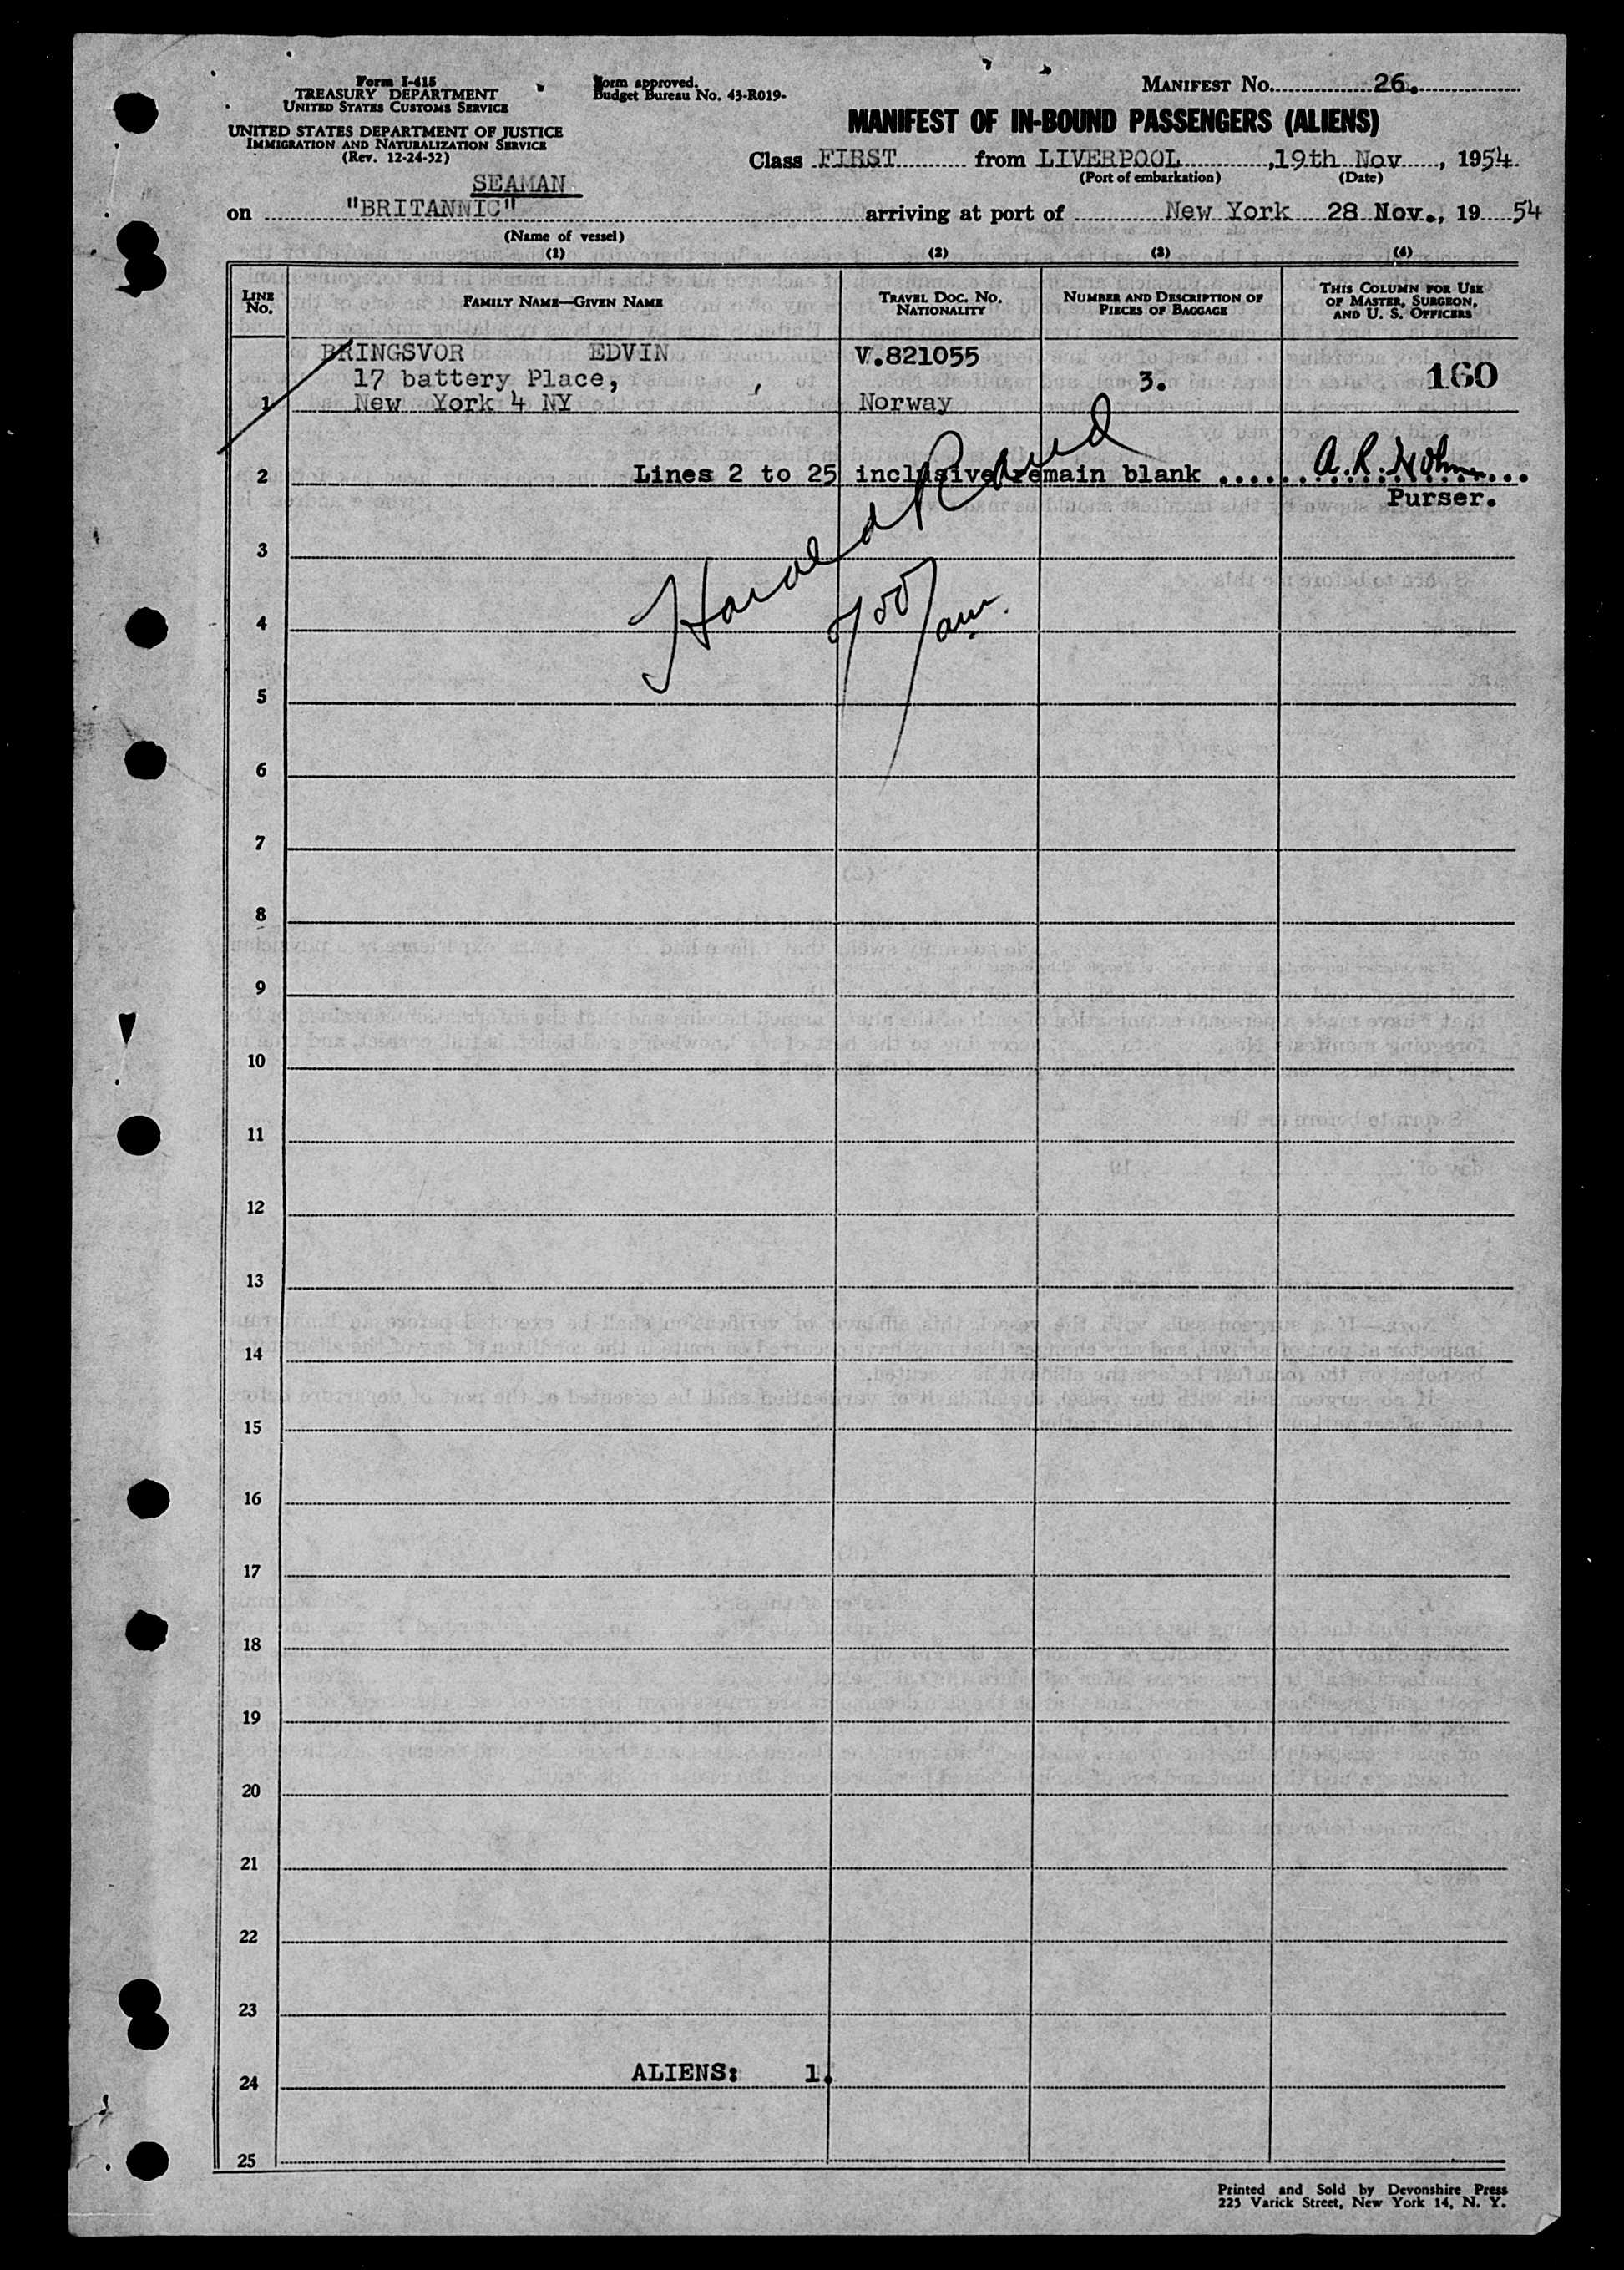 Form I-415
TREASURY DEPARTMENT
UNITED STATES CUSTOMS SERVICE
UNITED STATES DEPARTMENT OF JUSTICE
IMMIGRATION AND NATURALIZATION SERVICE
(Rev. 12-24-52)
Form approved.
Budget Bureau No. 43-R019-
MANIFEST NO. 26.
MANIFEST OF IN-BOUND PASSENGERS (ALIENS)
Class FIRST from LIVERPOOL, 19th Nov, 1954.
(Port of embarkation) (Date)
SEAMAN
on "BRITANNIC" arriving at port of New York 28 Nov., 19 54
(Name of vessel)
(1) (2) (3) (4)
LINE NO. FAMILY NAME—GIVEN NAME TRAVEL DOC. NO. NATIONALITY NUMBER AND DESCRIPTION OF PIECES OF BAGGAGE THIS COLUMN FOR USE OF MASTER, SURGEON, AND U. S. OFFICERS
BRINGSVOR EDVIN V.821055
17 battery Place, , 3. 160
1 New York 4 NY Norway
2 Lines 2 to 25 inclusive remain blank ....................
Purser.
3
Harold
4
5
6
7
8
9
10
11
12
13
14
15
16
17
18
19
20
21
22
23
ALIENS: 1.
24
25
Printed and Sold by Devonshire Press
225 Varick Street, New York 14, N. Y.